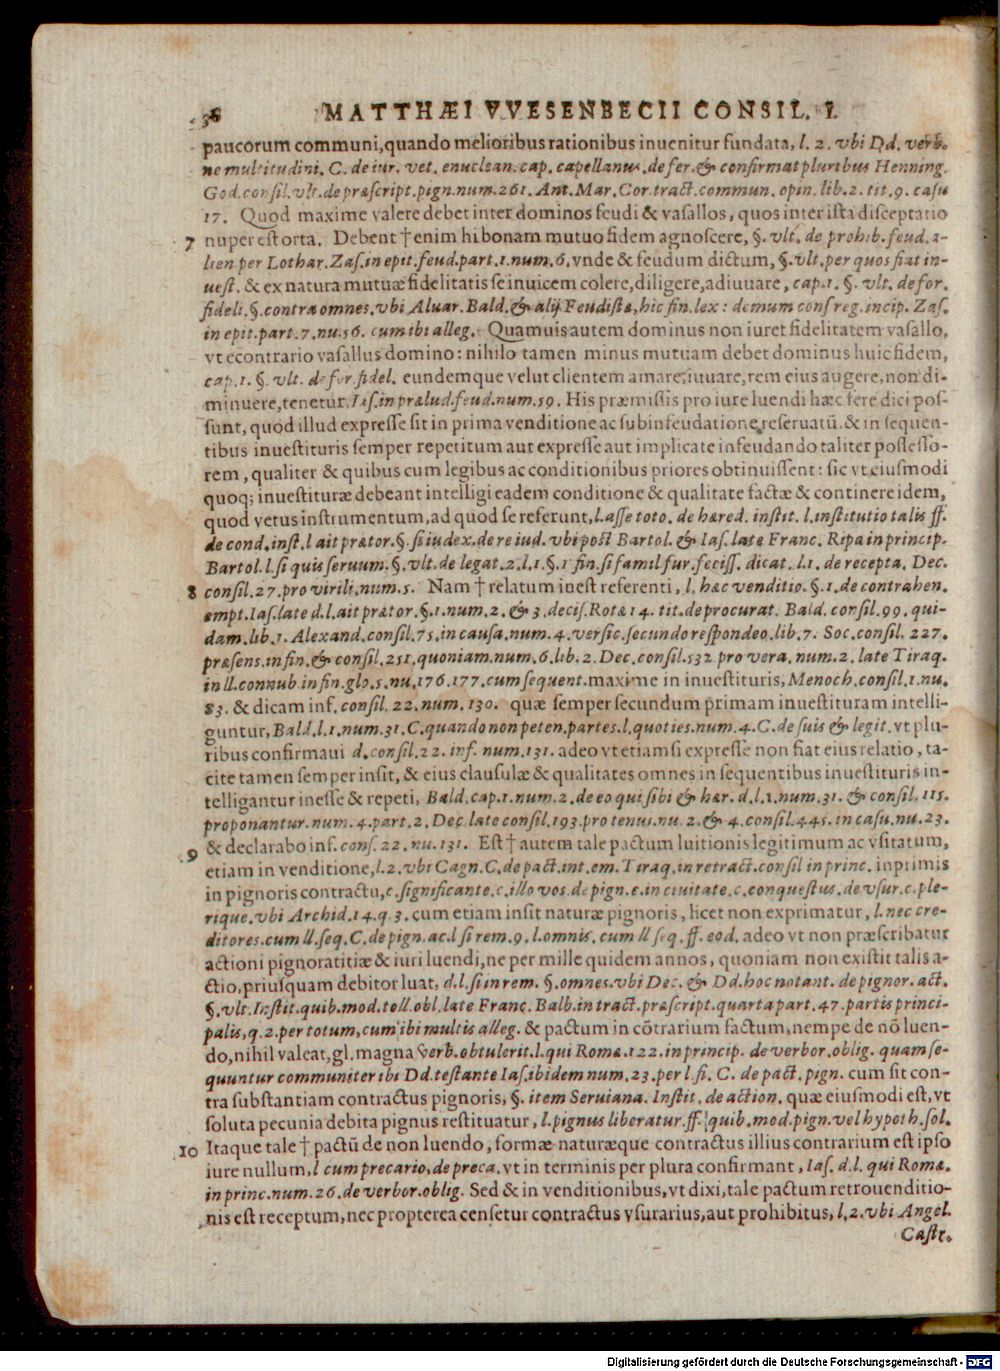 36 MATTHÆI VVESENBECII CONSIL. I.
paucorum communi, quando melioribus rationibus inuenitur fundata, l. 2. vbi Dd. verb.
ne multitudini. C. de iur. vet. enuclean. cap. capellanus. de fer. & confirmat pluribus Henning.
God. consil. vlt. de præscript. pign. num. 261. Ant. Mar. Cor. tract. commun. opin. lib. 2. tit. 9. casu
17. Quod maxime valere debet inter dominos feudi & vasallos, quos inter ista disceptatio
7 nuper est orta. Debent † enim hi bonam mutuo fidem agnoscere, §. vlt. de prohib. feud. a-
lien. per Lothar. Zas. in epit. feud. part. 1. num. 6. vnde & feudum dictum, §. vlt. per quos fiat in-
uest. & ex natura mutuæ fidelitatis se inuicem colere, diligere, adiuuare, cap. 1. §. vlt. de for.
fideli. §. contra omnes. vbi Aluar. Bald. & alij Feudistæ, hic fin. lex: demum cons reg. incip. Zas.
in epit. part. 7. nu. 56. cum ibi alleg. Quamuis autem dominus non iuret fidelitatem vasallo,
vt econtrario vasallus domino: nihilo tamen minus mutuam debet dominus huic fidem,
cap. 1. §. vlt. de for. fidel. eundemque velut clientem amare, iuuare, rem eius augere, non di-
minuere, tenetur. Ias. in prælud. feud. num. 59. His præmissis pro iure luendi hæc fere dici pos-
sunt, quod illud expresse sit in prima venditione ac subinfeudatione reseruatū. & in sequen-
tibus inuestituris semper repetitum aut expresse aut implicate infeudando taliter possesso-
rem, qualiter & quibus cum legibus ac conditionibus priores obtinuissent: sic vt eiusmodi
quoq; inuestituræ debeant intelligi eadem conditione & qualitate factæ & continere idem,
quod vetus instrumentum, ad quod se referunt, l. asse toto. de hæred. instit. l. institutio talis ff.
de cond. inst. l ait prætor. §. si iudex. de re iud. vbi post Bartol. & Ias. late Franc. Ripa in princip.
Bartol. l. si quis seruum. §. vlt. de legat. 2. l. 1. §. 1 fin. si famil fur. feciss. dicat. l. 1. de recepta. Dec.
8 consil. 27. pro virili. num. 5. Nam † relatum inest referenti, l. hac venditio. §. 1. de contrahen.
empt. Ias. late d. l. ait prætor. §. 1. num. 2. & 3. decis. Rotæ 14. tit. de procurat. Bald. consil. 99. qui-
dam. lib. 1. Alexand. consil. 75. in causa. num. 4. versic. secundo respondeo. lib. 7. Soc. consil. 227.
præsens. in fin. & consil. 251. quoniam. num. 6. lib. 2. Dec. consil. 532. pro vera. num. 2. late Tiraq.
in ll. connub. in fin. glo. 5. nu. 176. 177. cum sequent. maxime in inuestituris, Menoch. consil. 1. nu.
83. & dicam inf. consil. 22. num. 130. quæ semper secundum primam inuestituram intelli-
guntur, Bald. l. 1. num. 31. C. quando non peten. partes. l. quoties. num. 4. C. de suis & legit. vt plu-
ribus confirmaui d. consil. 22. inf. num. 131. adeo vt etiamsi expresse non fiat eius relatio, ta-
cite tamen semper insit, & eius clausulæ & qualitates omnes in sequentibus inuestituris in-
telligantur inesse & repeti, Bald. cap. 1. num. 2. de eo qui sibi & hær. d. l. 1. num. 31. & consil. 115.
proponantur. num. 4. part. 2. Dec. late consil. 193. pro tenui. nu. 2. & 4. consil. 445. in casu. nu. 23.
9 & declarabo inf. cons. 22. nu. 131. Est † autem tale pactum luitionis legitimum ac vsitatum,
etiam in venditione, l. 2. vbi Cagn. C. de pact. int. em. Tiraq. in retract. consil in princ. inprimis
in pignoris contractu, c. significante. c. illo vos. de pign. c. in ciuitate. c. conquestus. de vsur. c. ple-
rique. vbi Archid. 14. q. 3. cum etiam insit naturæ pignoris, licet non exprimatur, l. nec cre-
ditores. cum ll. seq. C. de pign. ac. l si rem. 9. l. omnis. cum ll seq. ff. eod. adeo vt non præscribatur
actioni pignoratitiæ & iuri luendi, ne per mille quidem annos, quoniam non existit talis a-
ctio, priusquam debitor luat, d. l. si in rem. §. omnes. vbi Dec. & Dd. hoc notant. de pignor. act.
§. vlt. Instit. quib. mod. toll. obl. late Franc. Balb. in tract. præscript. quarta part. 47. partis princi-
palis, q. 2. per totum, cum ibi multis alleg. & pactum in cōtrarium factum, nempe de nō luen-
do, nihil valeat, gl. magna verb. obtulerit. l. qui Romæ. 122. in princip. de verbor. oblig. quam se-
quuntur communiter ibi Dd. testante Ias. ibidem num. 23. per l. fi. C. de pact. pign. cum sit con-
tra substantiam contractus pignoris, §. item Seruiana. Instit. de action. quæ eiusmodi est, vt
soluta pecunia debita pignus restituatur, l. pignus liberatur. ff. quib. mod. pign. vel hypoth. sol.
10 Itaque tale † pactū de non luendo, formæ naturæque contractus illius contrarium est ipso
iure nullum, l cum precario, de preca. vt in terminis per plura confirmant, Ias. d. l. qui Romæ.
in princ. num. 26. de verbor. oblig. Sed & in venditionibus, vt dixi, tale pactum retrouenditio-
nis est receptum, nec propterea censetur contractus vsurarius, aut prohibitus, l. 2. vbi Angel.
Castr.
Digitalisierung gefördert durch die Deutsche Forschungsgemeinschaft - DFG